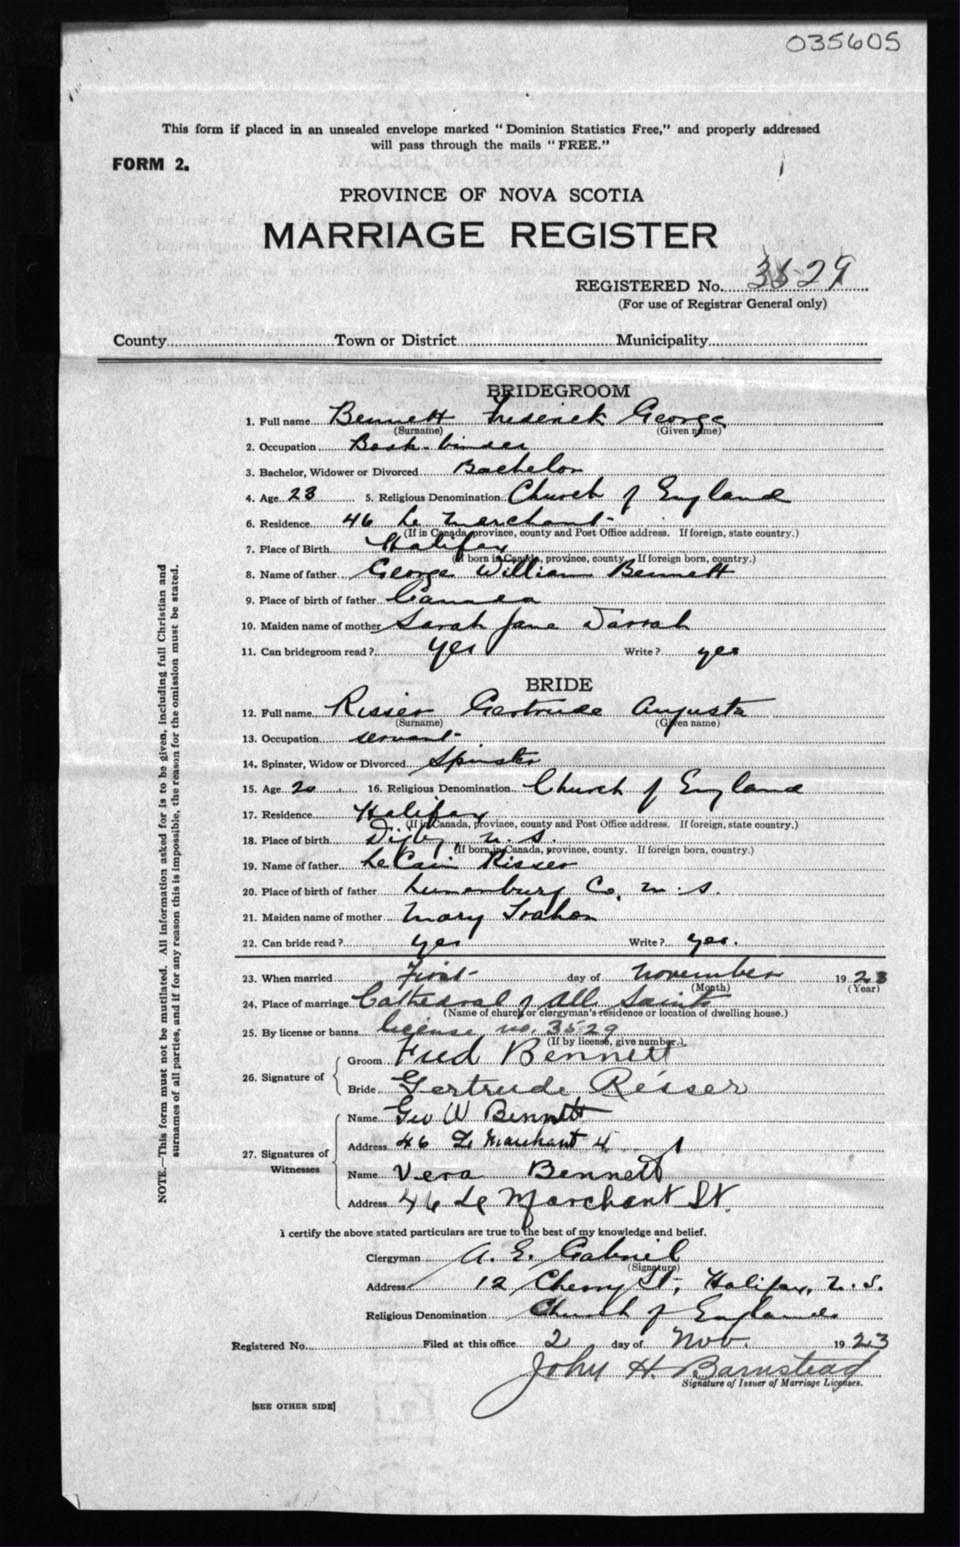 035605
This form if placed in an unsealed envelope marked "Dominion Statistics Free," and properly addressed
will pass through the mails "FREE."
FORM 2.
PROVINCE OF NOVA SCOTIA
MARRIAGE REGISTER
REGISTERED No. 3529
(For use of Registrar General only)
County Town or District Municipality
BRIDEGROOM
1. Full name Bennett Frederick George
(Surname) (Given name)
2. Occupation Book-binder
3. Bachelor, Widower or Divorced Bachelor
4. Age 23 5. Religious Denomination Church of England
6. Residence 46 Le Merchant
(If in Canada, province, county and Post Office address. If foreign, state country.)
7. Place of Birth Halifax
(If born in Canada, province, county. If foreign born, country.)
8. Name of father George William Bennett
9. Place of birth of father Canada
10. Maiden name of mother Sarah Jane Darrah
11. Can bridegroom read? yes Write? yes
BRIDE
12. Full name Risser Gertrude Augusta
(Surname) (Given name)
13. Occupation servant
14. Spinster, Widow or Divorced Spinster
15. Age 20 16. Religious Denomination Church of England
17. Residence Halifax
(If in Canada, province, county and Post Office address. If foreign, state country.)
18. Place of birth Digby, N. S.
(If born in Canada, province, county. If foreign born, country.)
19. Name of father LeCain Risser
20. Place of birth of father Lunenburg Co. N. S.
21. Maiden name of mother Mary
22. Can bride read? yes Write? yes.
23. When married First day of November 1923
(Month) (Year)
24. Place of marriage Cathedral of All Saints
(Name of church or clergyman's residence or location of dwelling house.)
25. By license or banns license no. 3529
(If by license, give number.)
26. Signature of
Groom Fred Bennett
Bride Gertrude Reiser
27. Signatures of Witnesses
Name Geo W Bennett
Address 46 Le Marchant
Name Vera Bennett
Address 46 Le Marchant St.
I certify the above stated particulars are true to the best of my knowledge and belief.
Clergyman A. E. Gabriel
(Signature)
Address 12 Cherry St, Halifax, N. S.
Religious Denomination Church of England
Registered No. Filed at this office 2 day of Nov. 1923
John H. Barnstead
Signature of Issuer of Marriage Licenses.
[SEE OTHER SIDE]
NOTE.—This form must not be mutilated. All information asked for is to be given, including full Christian and
surnames of all parties, and if for any reason this is impossible, the reason for the omission must be stated.